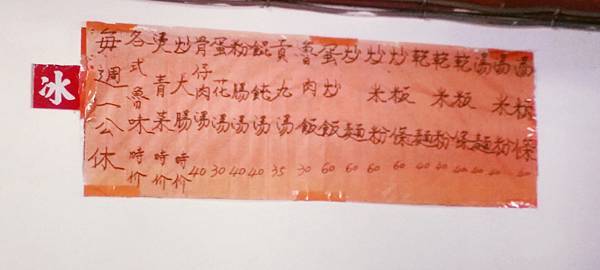 湯板條 40
湯米粉 40
湯麵 40
乾板條 40
乾米粉 40
乾麵 40
炒板條 60
炒米粉 60
炒麵 60
蛋炒飯 60
魯肉飯 30
貢丸湯 35
餛飩湯 40
粉腸湯 40
蛋花湯 30
骨仔肉湯 40
炒大腸 時价
燙青菜 時价
各式魯味 時价
每週一公休
冰